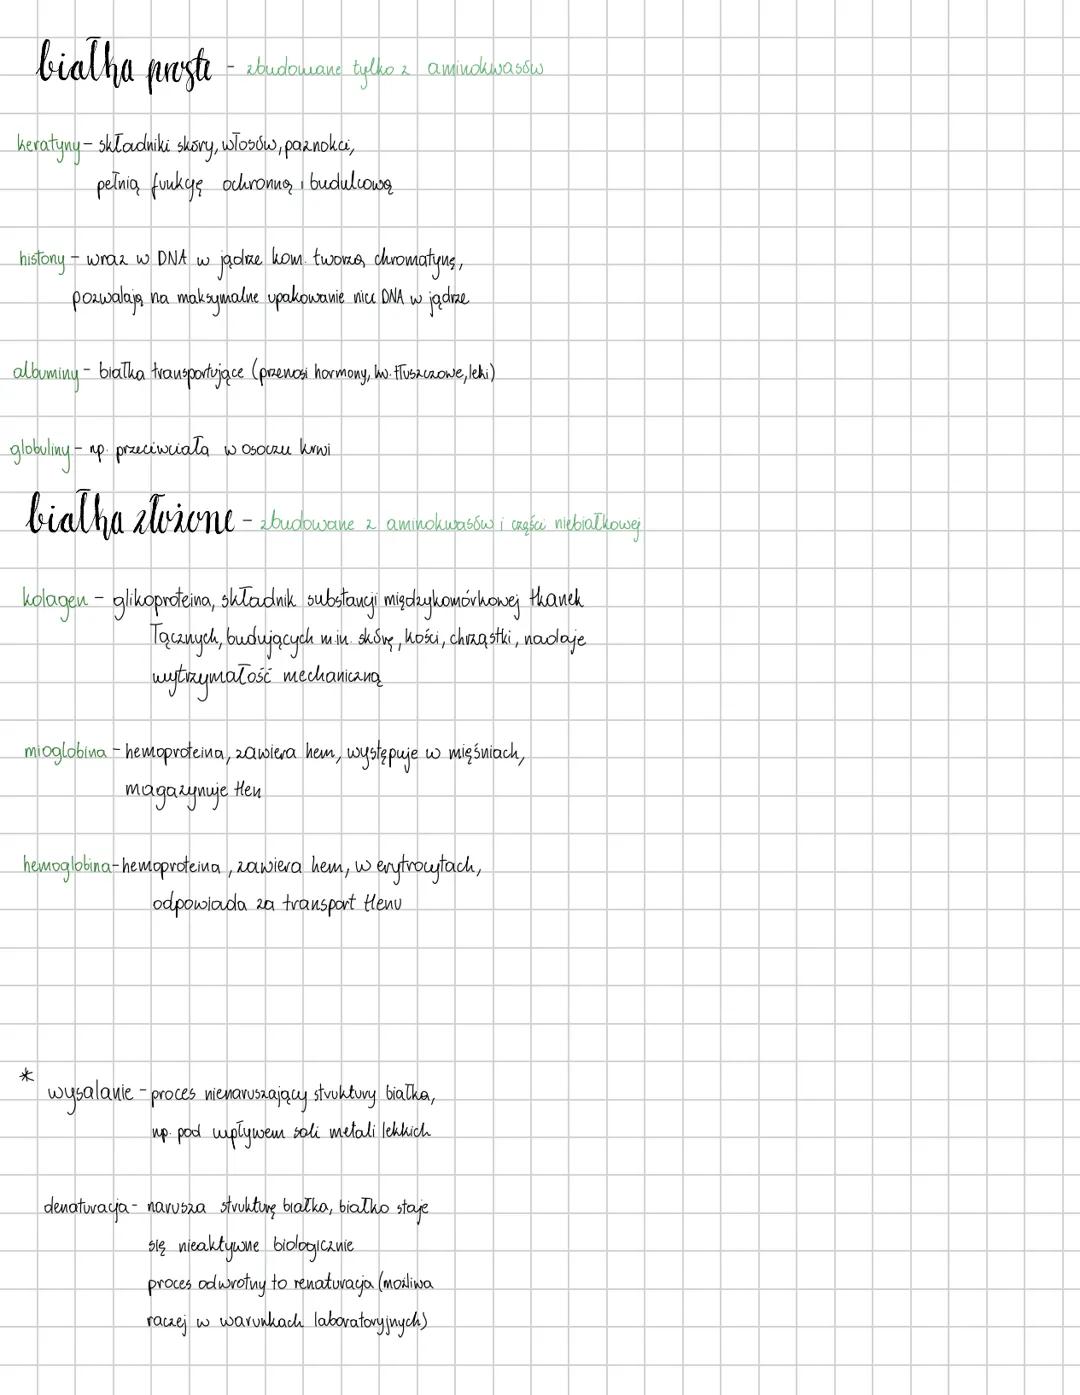 białka proste - zbudowane tylko z aminokwasów
keratyny - składniki skóry, włosów, paznokci,
pełnią funkcję ochronną i budulcową
histony - wraz w DNA w jądrze kom. tworzą chromatynę,
pozwalają na maksymalne upakowanie nici DNA w jądrze
albuminy - białka transportujące (przenosi hormony, kw. tłuszczowe, leki)
globuliny - np. przeciwciała w osoczu krwi
białka złożone - zbudowane z aminokwasów i części niebiałkowej
kolagen - glikoproteina, składnik substancji międzykomórkowej tkanek
łącznych, budujących m.in. skórę, kości, chrząstki, nadaje
wytrzymałość mechaniczną
mioglobina - hemoproteina, zawiera hem, występuje w mięśniach,
magazynuje tlen
hemoglobina - hemoproteina, zawiera hem, w erytrocytach,
odpowiada za transport tlenu
*
wysalanie - proces nienaruszający struktury białka,
np. pod wpływem soli metali lekkich
denaturacja - narusza strukturę białka, białko staje
się nieaktywne biologicznie
proces odwrotny to renaturacja (możliwa
raczej w warunkach laboratoryjnych)